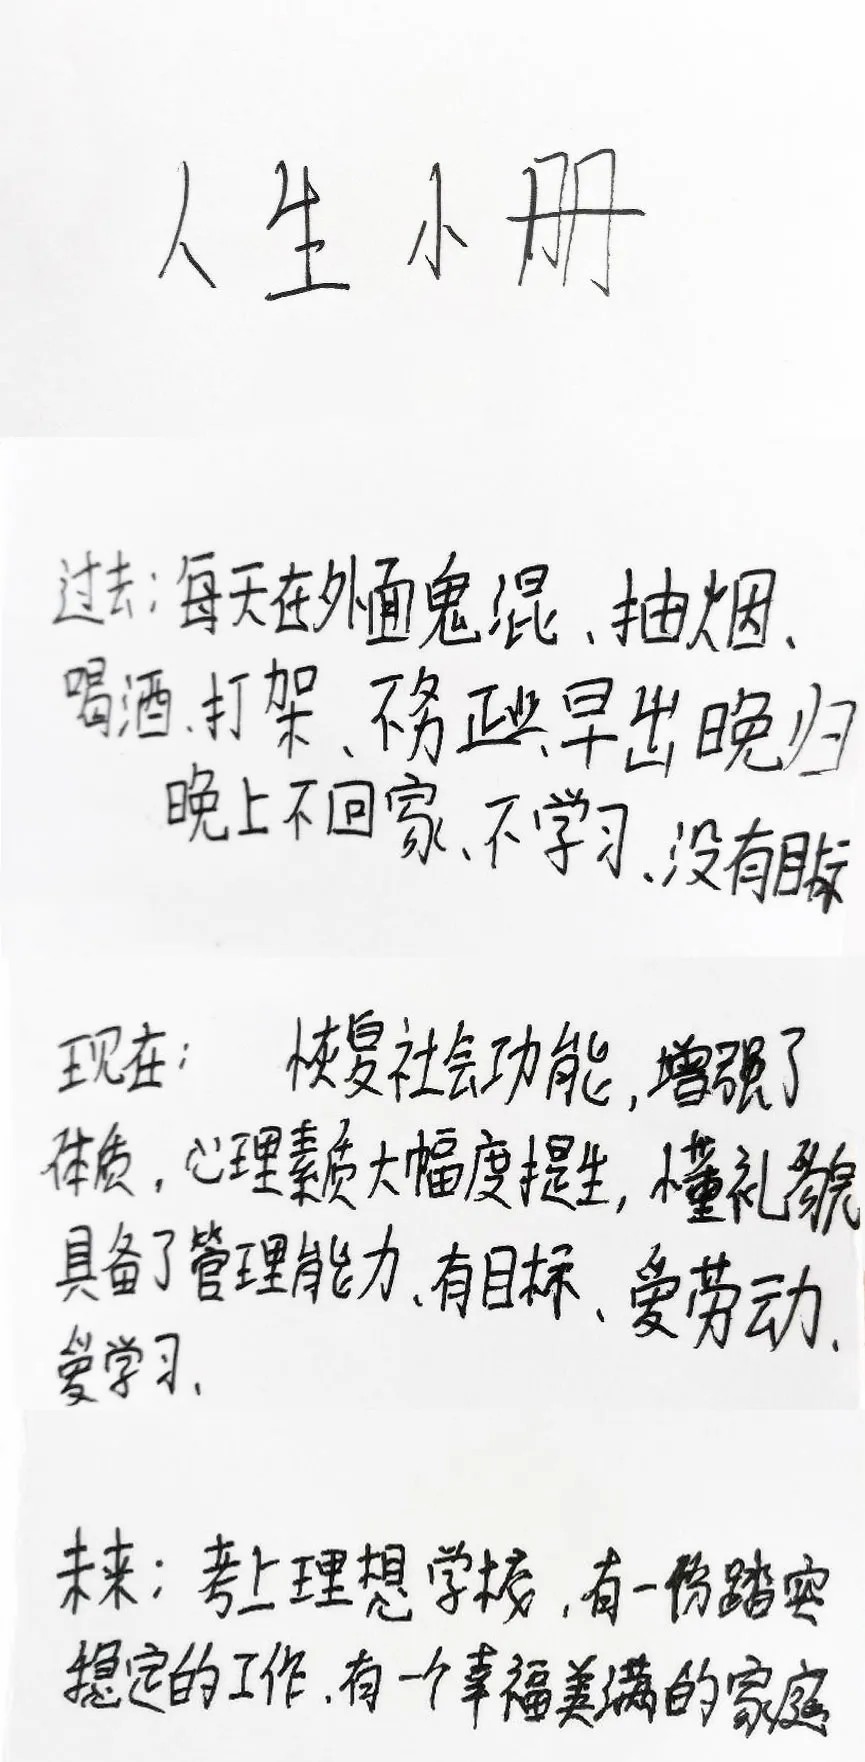 人生小册
过去：每天在外面鬼混、抽烟、
喝酒、打架、不务正业、早出晚归
晚上不回家、不学习、没有目标
现在： 恢复社会功能，增强了
体质，心理素质大幅度提生，懂礼貌
具备了管理能力、有目标、爱劳动、
爱学习、
未来：考上理想学校，有一份踏实
稳定的工作、有一个幸福美满的家庭